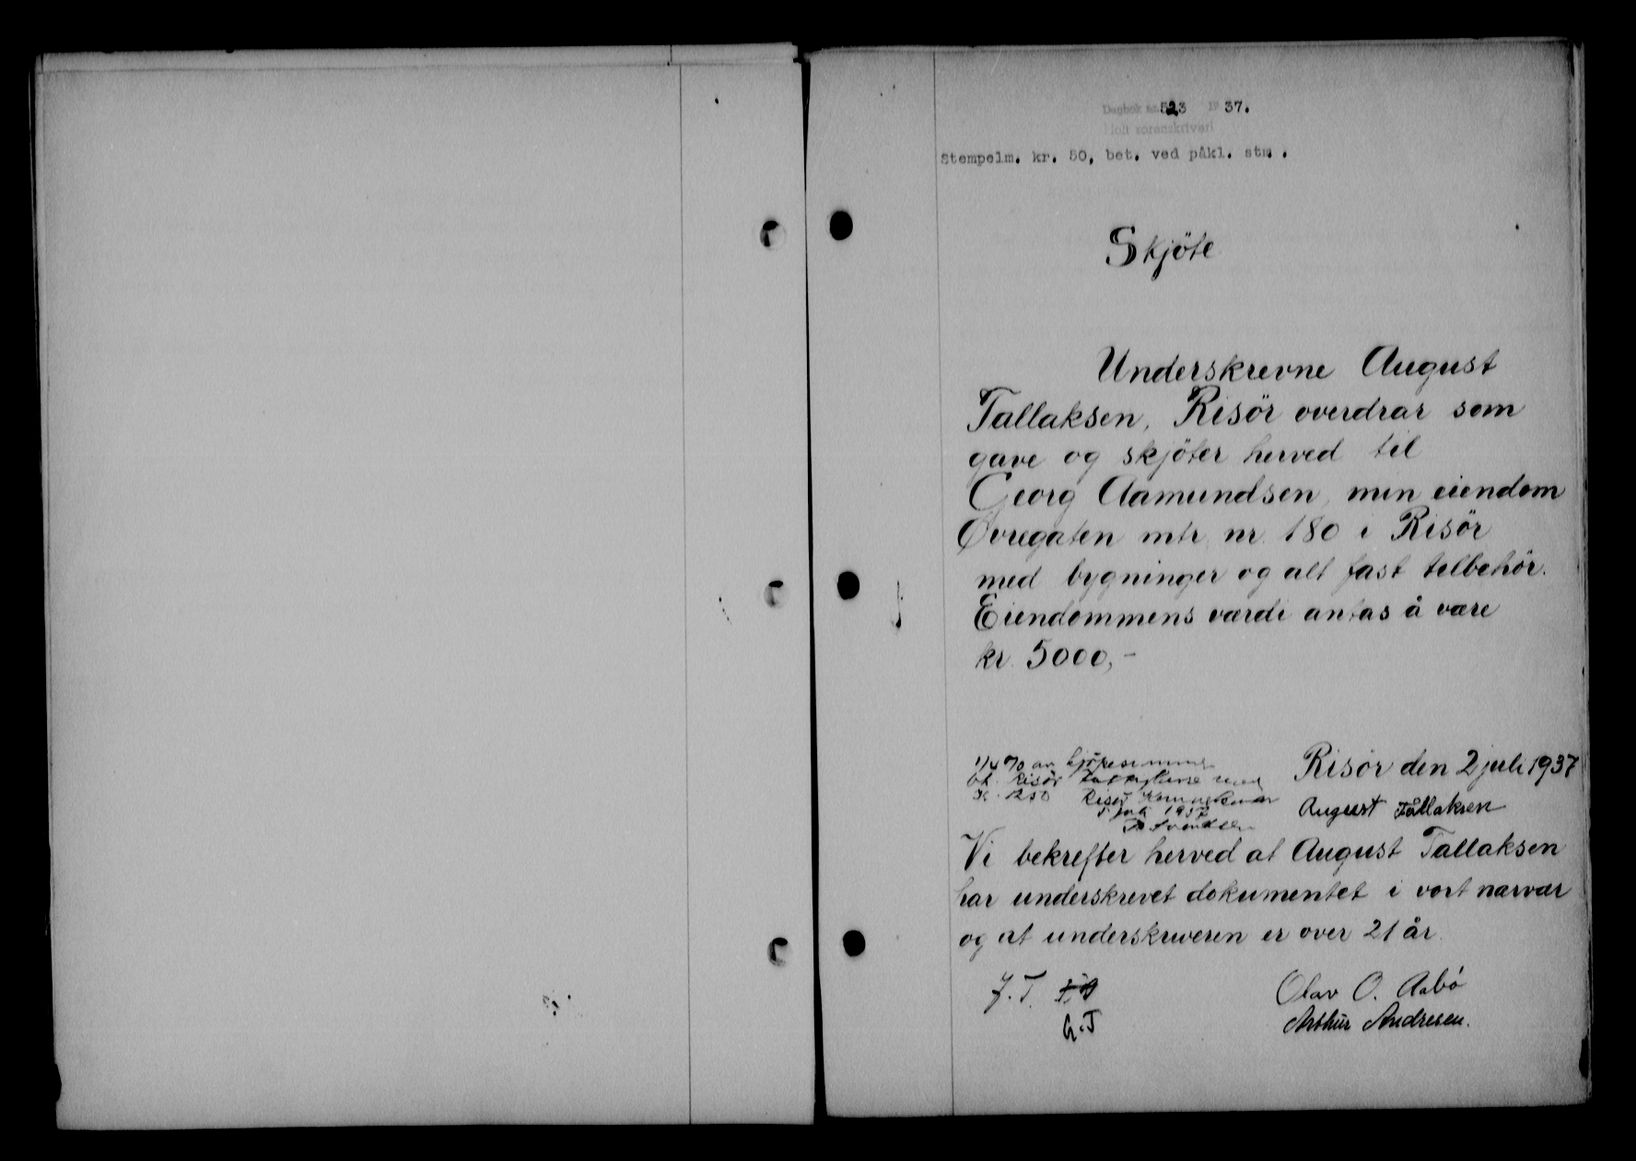 Dagbok nr. 523 19 37.
Holt sorenskriveri
Stempelm. kr. 50, bet. ved påkl. stm.
Skjöte
Underskrevne August
Tallaksen, Risör overdrar som
gave og skjöter herved til
Georg Aamundsen, min eiendom
Øvregaten mtr. nr. 180 i Risör
med bygninger og alt fast tilbehör.
Eiendommens værdi antas å være
kr. 5000,-
1/4 % av kjöpesummen
bt. Risör
Kr. 1250 Risör
5 juli 1937
Svendsen
Risör den 2 juli 1937
August Tallaksen
Vi bekrefter herved at August Tallaksen
har underskrevet dokumentet i vort nærvær
og at underskriveren er over 21 år.
J.T.
G.T
Olav O. Aabö
Arthur Andresen.